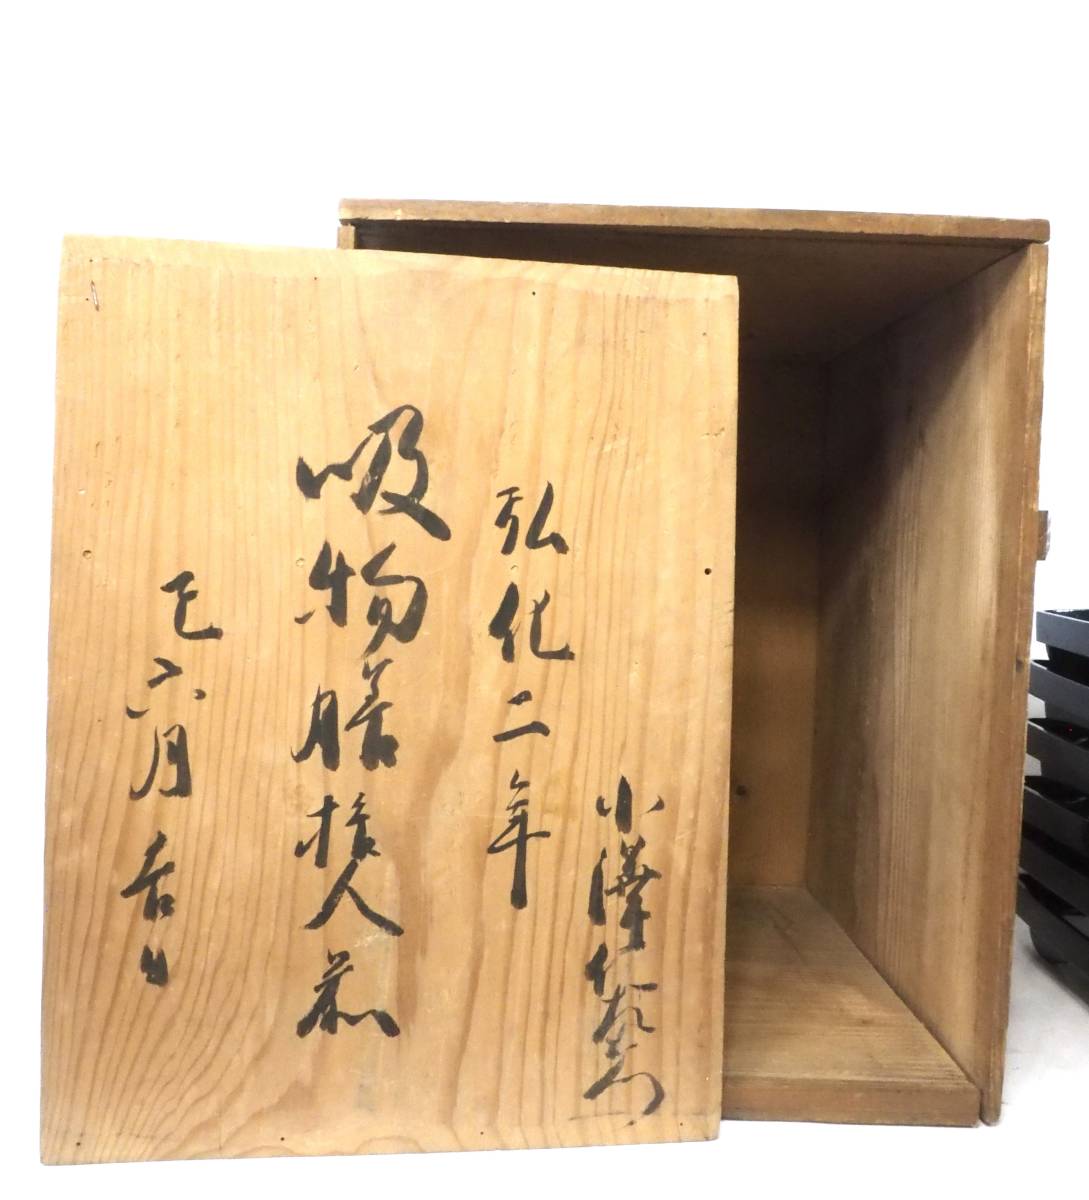 小澤
弘化二年
吸物膳拾人前
巳六月吉日